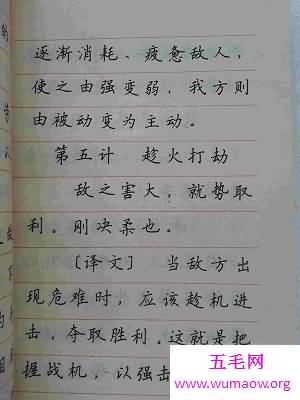 逐渐消耗、疲惫敌人，
使之由强变弱，我方则
由被动变为主动。
第五计 趁火打劫
敌之害大，就势取
利。刚决柔也。
〔译文〕 当敌方出
现危难时，应该趁机进
击，夺取胜利。这就是把
握战机，以强击
五毛网
www.wumaow.org